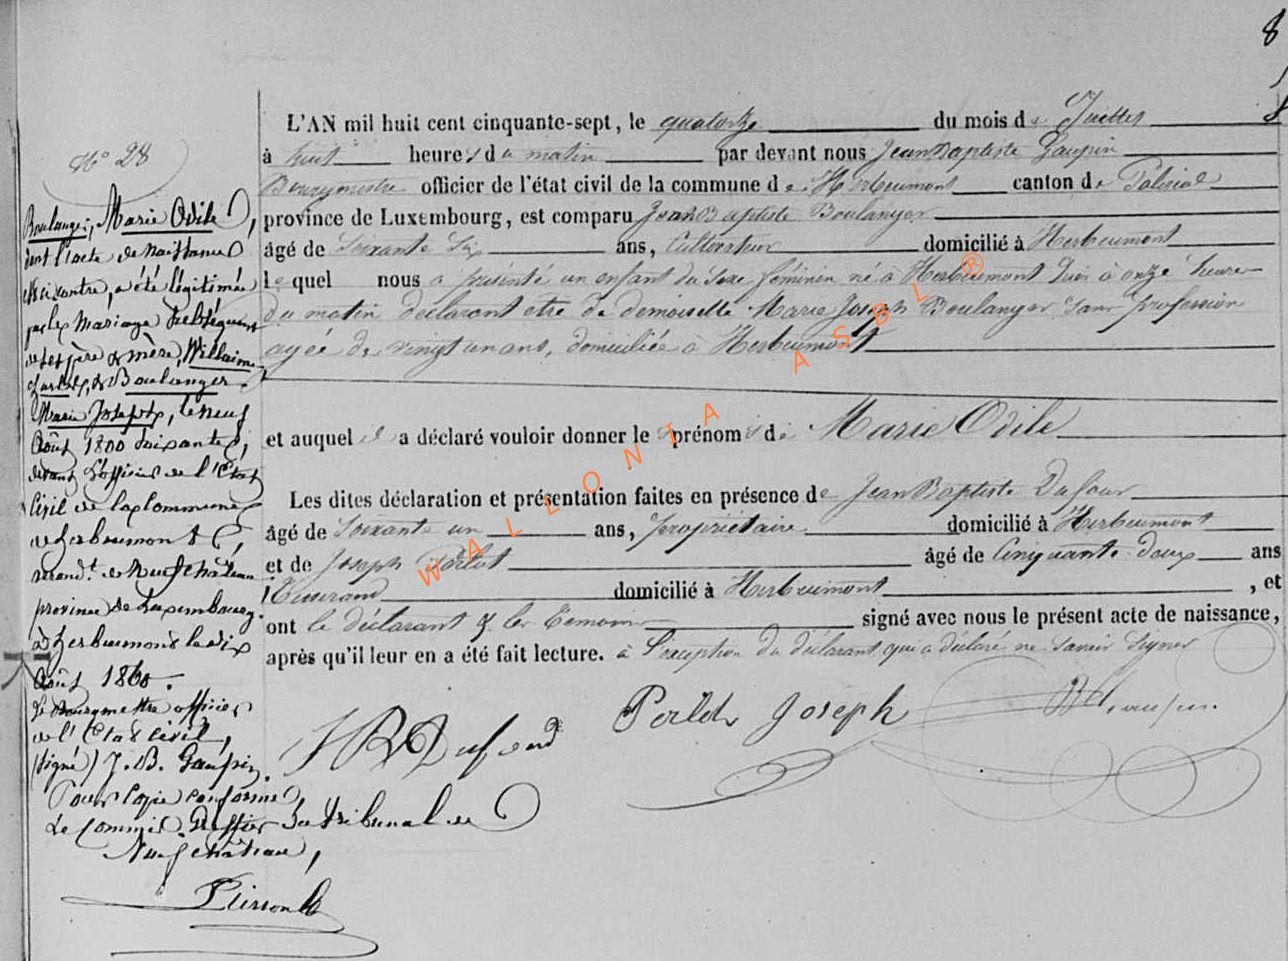 8
N° 28
L'AN mil huit cent cinquante-sept, le quatorze du mois de Juillet
à huit heures du matin par devant nous Jean Baptiste Gaupin
Bourgmestre officier de l'état civil de la commune de Herbeumont canton de Paliseul
province de Luxembourg, est comparu Jean Baptiste Boulanger
âgé de Soixante Six ans, Cultivateur domicilié à Herbeumont
lequel nous a présenté un enfant du Sexe féminin né à Herbeumont à onze heures
du matin déclarant etre de demoiselle Marie Joseph Boulanger Sans profession
agée de vingt un ans, domiciliée à Herbeumont
et auquel il a déclaré vouloir donner les prénoms de Marie Odile
Les dites déclaration et présentation faites en présence de Jean Baptiste Dufour
âgé de Soixante un ans, propriétaire domicilié à Herbeumont
et de Joseph âgé de Cinquante deux ans
Tisserand domicilié à Herbeumont, et
ont le déclarant & les Témoins signé avec nous le présent acte de naissance,
après qu'il leur en a été fait lecture. à l'exception du déclarant qui a déclaré ne Savoir Signer
Joseph
Boulanger, Marie Odile,
dont l'acte de Naissance
est ci contre, a été légitimée
par le Mariage Subséquent
de ses père & mère, Willaime
& Boulanger
Marie Joseph, le neuf
Août 1800 soixante,
devant l'officier de l'Etat
Civil de la Commune
de Herbeumont,
arrondt de Neufchâteau
province de Luxembourg.
à Herbeumont le dix
Août 1860.
Le Bourgmestre officier
de l'Etat civil,
(signé) J. B. Gaupin.
Pour Copie conforme
Le Commis Greffier du tribunal de
Neufchâteau,
WALLONIA ASBL ®